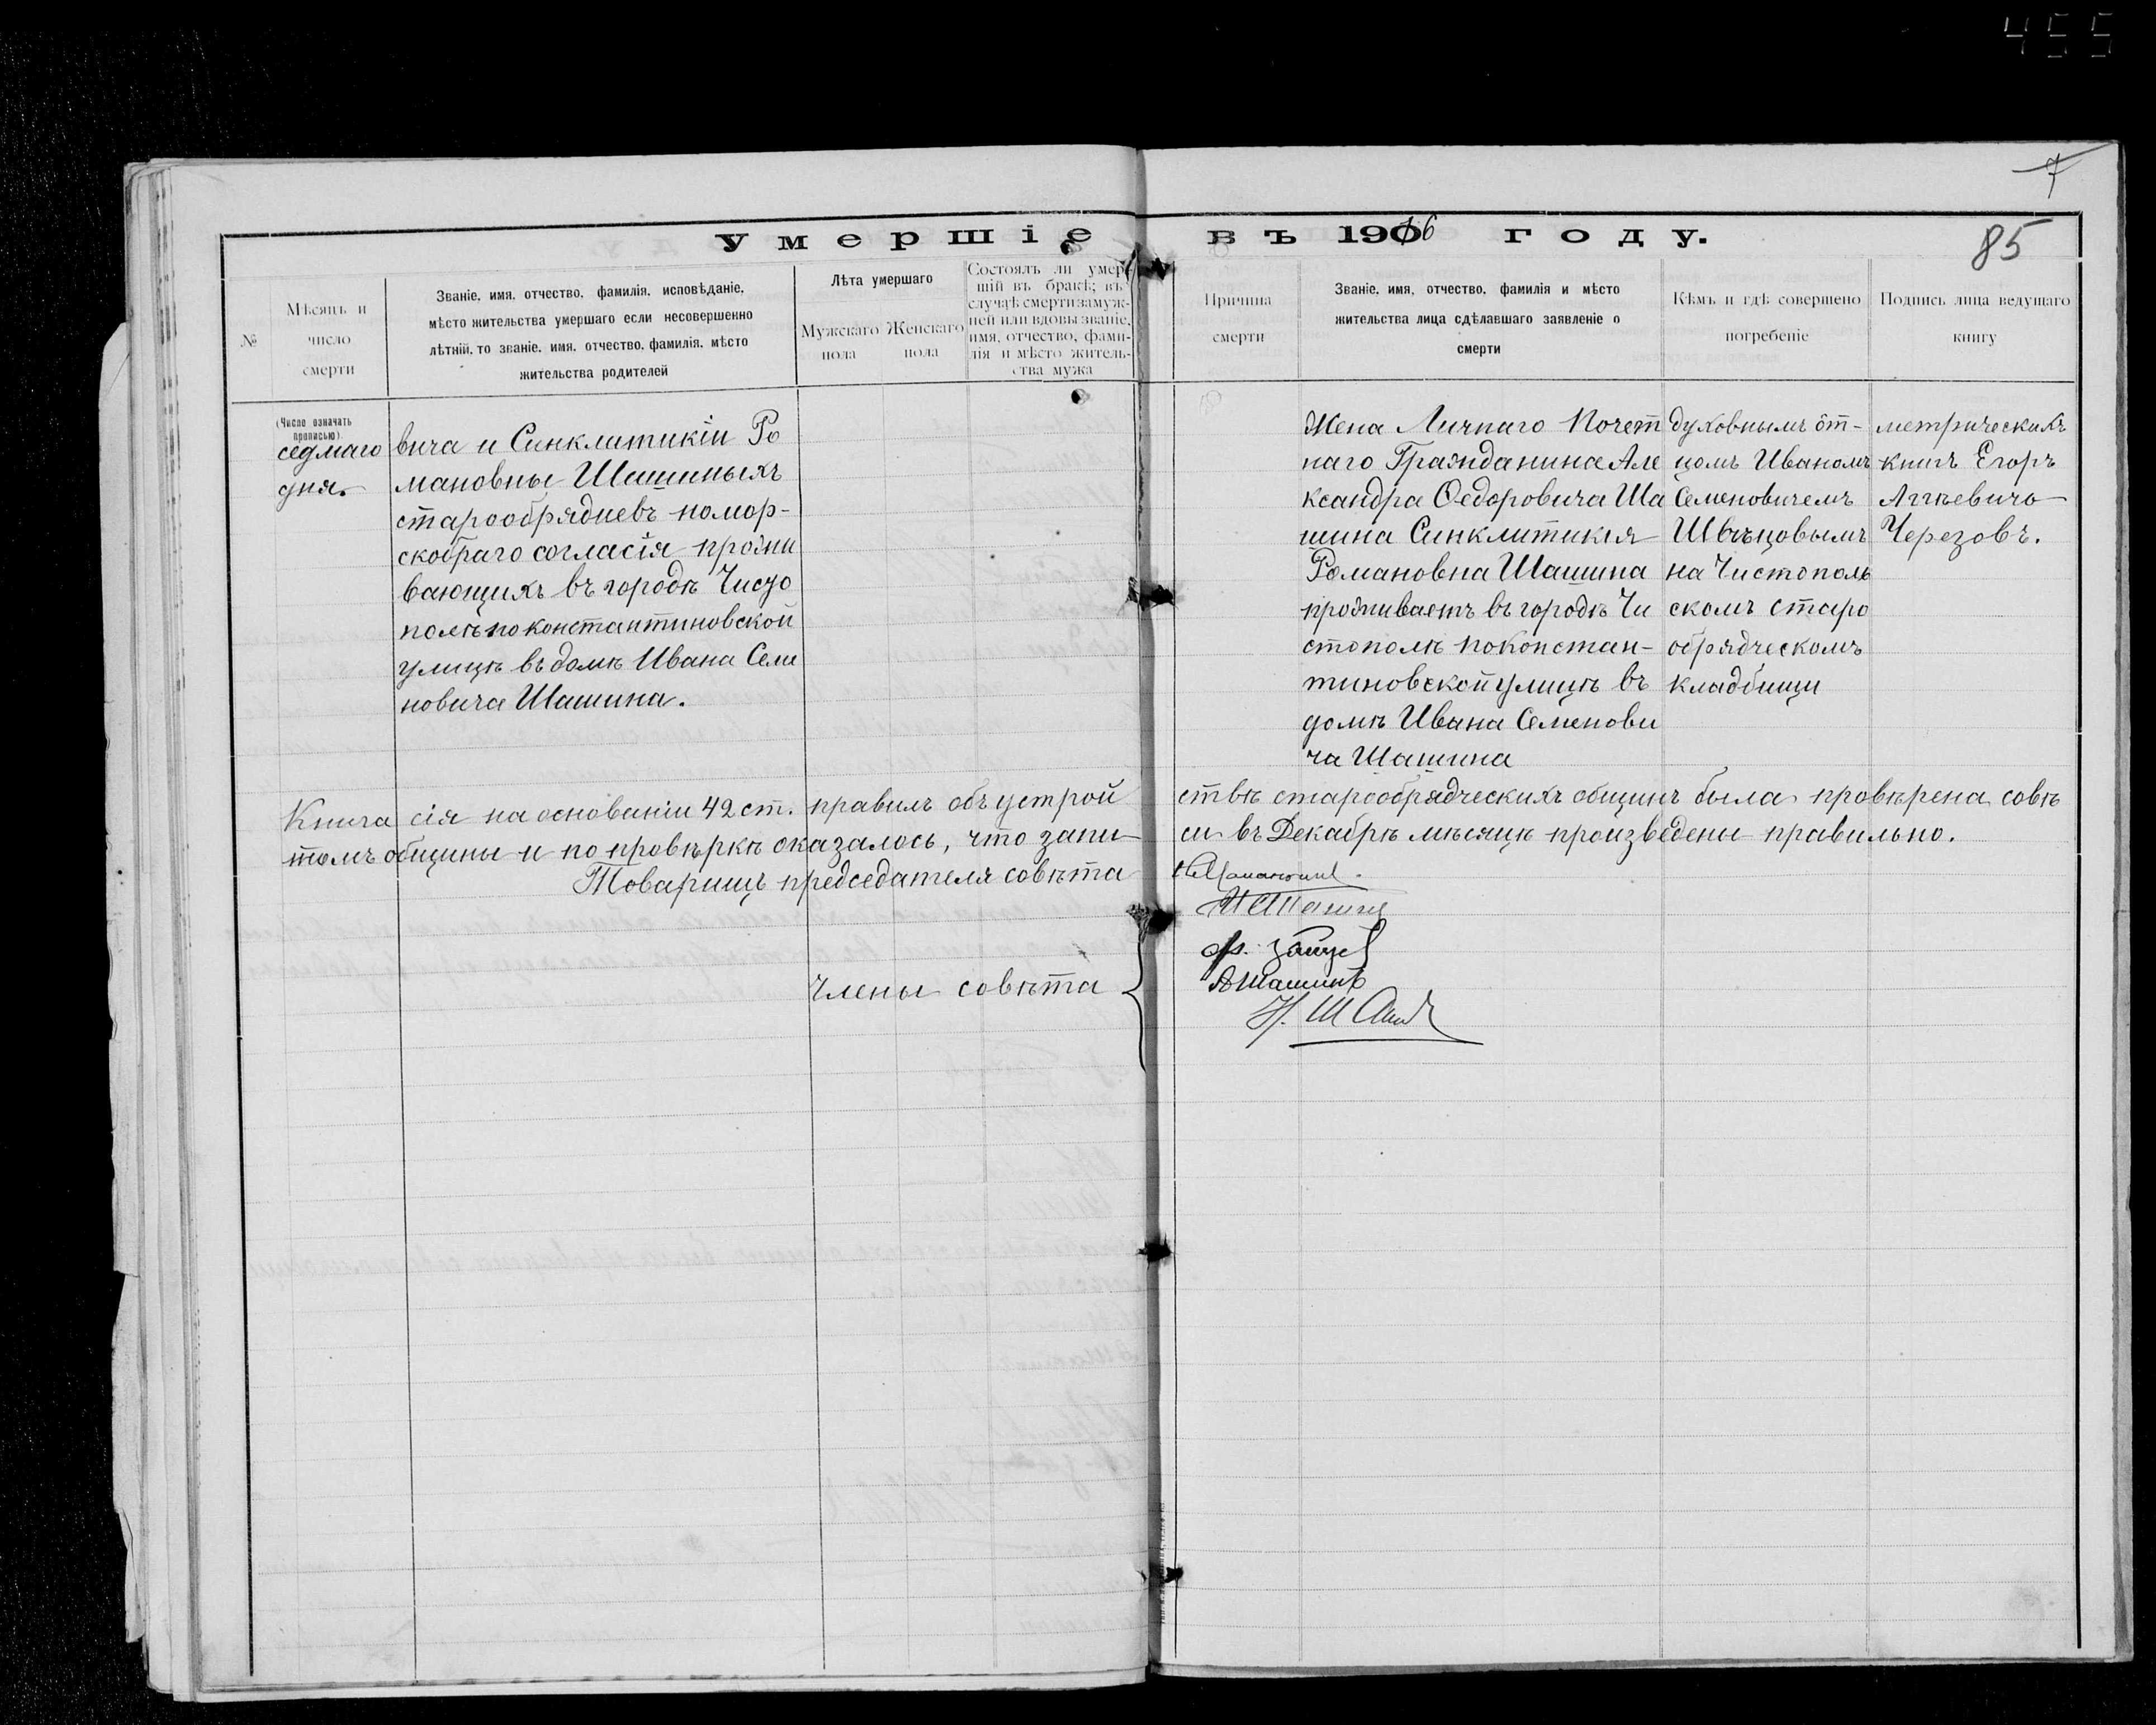 455
7
умершіе въ 1916 году.
85
№
Мѣсяцъ и
число
смерти
Званіе, имя, отчество, фамилія, исповѣданіе,
мѣсто жительства умершаго если несовершенно
лѣтній, то званіе, имя, отчество, фамилія, мѣсто
жительства родителей
Лѣта умершаго
Мужскаго
пола
Женскаго
пола
Состоялъ ли умер-
шій въ бракѣ; въ
случаѣ смерти замуж-
ней или вдовы званіе,
имя, отчество, фами-
лія и мѣсто житель-
ства мужа
Причина
смерти
Званіе, имя, отчество, фамилія и мѣсто
жительства лица сдѣлавшаго заявленіе о
смерти
Кѣмъ и гдѣ совершено
погребеніе
Подпись лица ведущаго
книгу
(Число означать
прописью)
седмаго
дня.
вича и Синклитикіи Ро
мановны Шашиныхъ
старообрядцевъ помор-
скобраго согласія прожи
вающихъ въ городѣ Чисто
полѣ по константиновской
улицѣ въ домѣ Ивана Семе
новича Шашина.
Жена Личнаго Почет
наго Гражданина Але
ксандра Ѳедоровича Ша
шина Синклитикія
Романовна Шашина
проживаетъ въ городѣ Чи
стополѣ по Констан-
тиновской улицѣ въ
домѣ Ивана Семенови
ча Шашина
духовнымъ от-
цомъ Иваномъ
Семеновичемъ
Швѣцовымъ
на Чистополь
скомъ старо
обрядческомъ
кладбищи
метрическихъ
книгъ Егоръ
Агѣевичъ
Черезовъ.
Книга сія на основаніи 42 ст. правилъ объ устрой ствѣ старообрядческихъ общинъ была провѣрена совѣ
томъ общины и по провѣркѣ оказалось, что запи си въ Декабрѣ мѣсяцѣ произведены правильно.
Товарищъ председателя совѣта
Члены совѣта
И Шашинъ
А Шашинъ